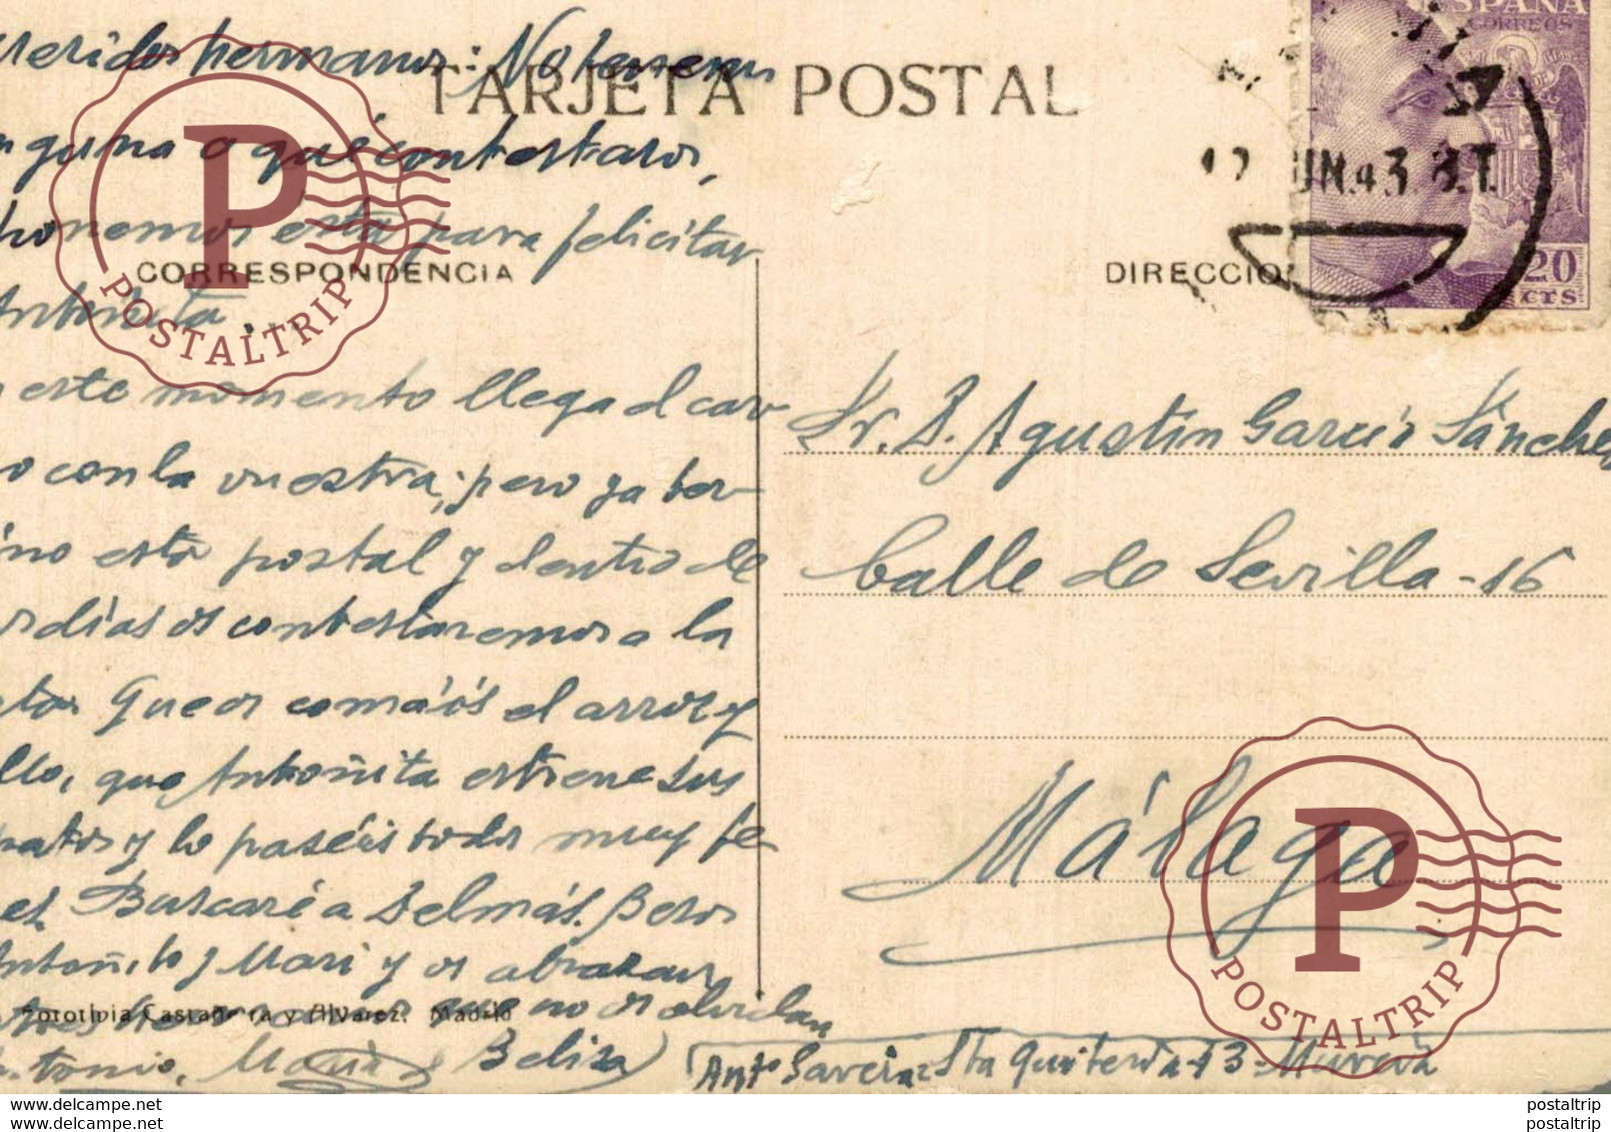 queridos hermanos: No tenemos
ninguna a qué contestaros,
ponemos ésta para felicitar
Antoñita.
este momento llega el car
o con la vuestra; pero ya ter-
mino esta postal y dentro de
días os contestaremos a la
Que os comáis el arroz y
que Antoñita estrene sus
zapatos y lo paséis todos muy fe-
Buscaré a Delmás. Besos
Antoñito y Mari y os abrazan
que no os olvidan
Antonio, María Beliza
TARJETA POSTAL
CORRESPONDENCIA
DIRECCION
ESPAÑA
CORREOS
20
CTS
12 JUN.43.8.T.
Sr. D. Agustín García Sánchez
Calle de Sevilla-16
Málaga
Fototipia Castañeira y Alvarez. Madrid
Antº García Sta Quiteria-13-Murcia
P
POSTALTRIP
P
POSTALTRIP
www.delcampe.net
www.delcampe.net
postaltrip
postaltrip